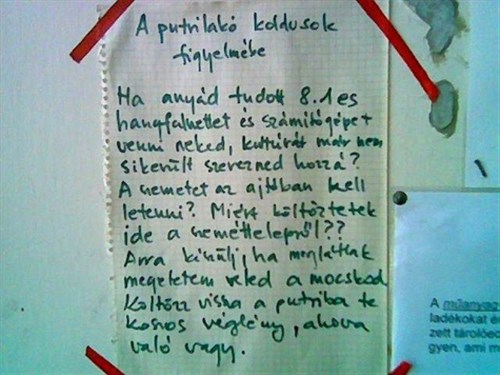 A putrilakó koldusok
figyelmébe
Ha anyád tudott 8.1 es
hangfalszettet és számítógépet
venni neked, kultúrát már nem
sikerült szerezned hozzá?
A szemetet az ajtóban kell
letenni? Miért költöztetek
ide a szeméttelepről??
Arra készülj, ha meglátlak
megetetem veled a mocskod
Költözz vissza a putriba te
koszos véglény, ahova
való vagy.
A műanyag
ladékokat é
zett tárolóed
gyen, ami m